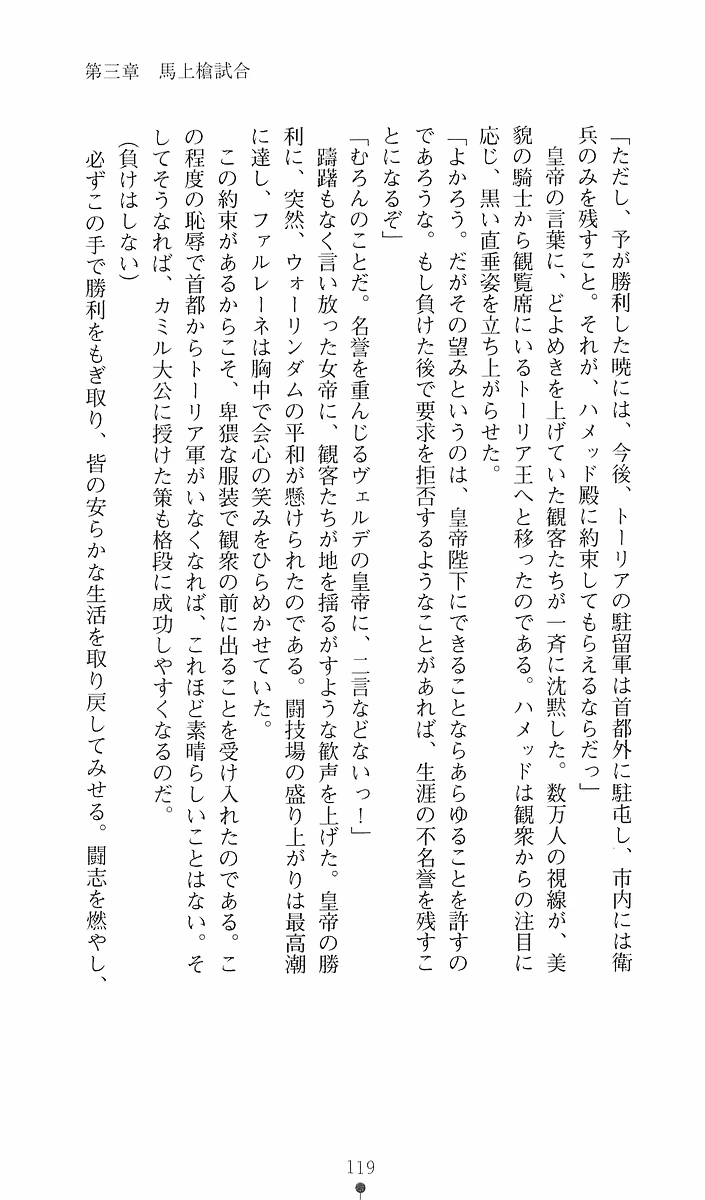 第三章　馬上槍試合
「ただし、予が勝利した暁には、今後、トーリアの駐留軍は首都外に駐屯し、市内には衛
兵のみを残すこと。それが、ハメッド殿に約束してもらえるならだっ」
　皇帝の言葉に、どよめきを上げていた観客たちが一斉に沈黙した。数万人の視線が、美
貌の騎士から観覧席にいるトーリア王へと移ったのである。ハメッドは観衆からの注目に
応じ、黒い直垂姿を立ち上がらせた。
「よかろう。だがその望みというのは、皇帝陛下にできることならあらゆることを許すの
であろうな。もし負けた後で要求を拒否するようなことがあれば、生涯の不名誉を残すこ
とになるぞ」
「むろんのことだ。名誉を重んじるヴェルデの皇帝に、二言などないっ！」
　躊躇もなく言い放った女帝に、観客たちが地を揺るがすような歓声を上げた。皇帝の勝
利に、突然、ウォーリンダムの平和が懸けられたのである。闘技場の盛り上がりは最高潮
に達し、ファルレーネは胸中で会心の笑みをひらめかせていた。
　この約束があるからこそ、卑猥な服装で観衆の前に出ることを受け入れたのである。こ
の程度の恥辱で首都からトーリア軍がいなくなれば、これほど素晴らしいことはない。そ
してそうなれば、カミル大公に授けた策も格段に成功しやすくなるのだ。
（負けはしない）
　必ずこの手で勝利をもぎ取り、皆の安らかな生活を取り戻してみせる。闘志を燃やし、
119